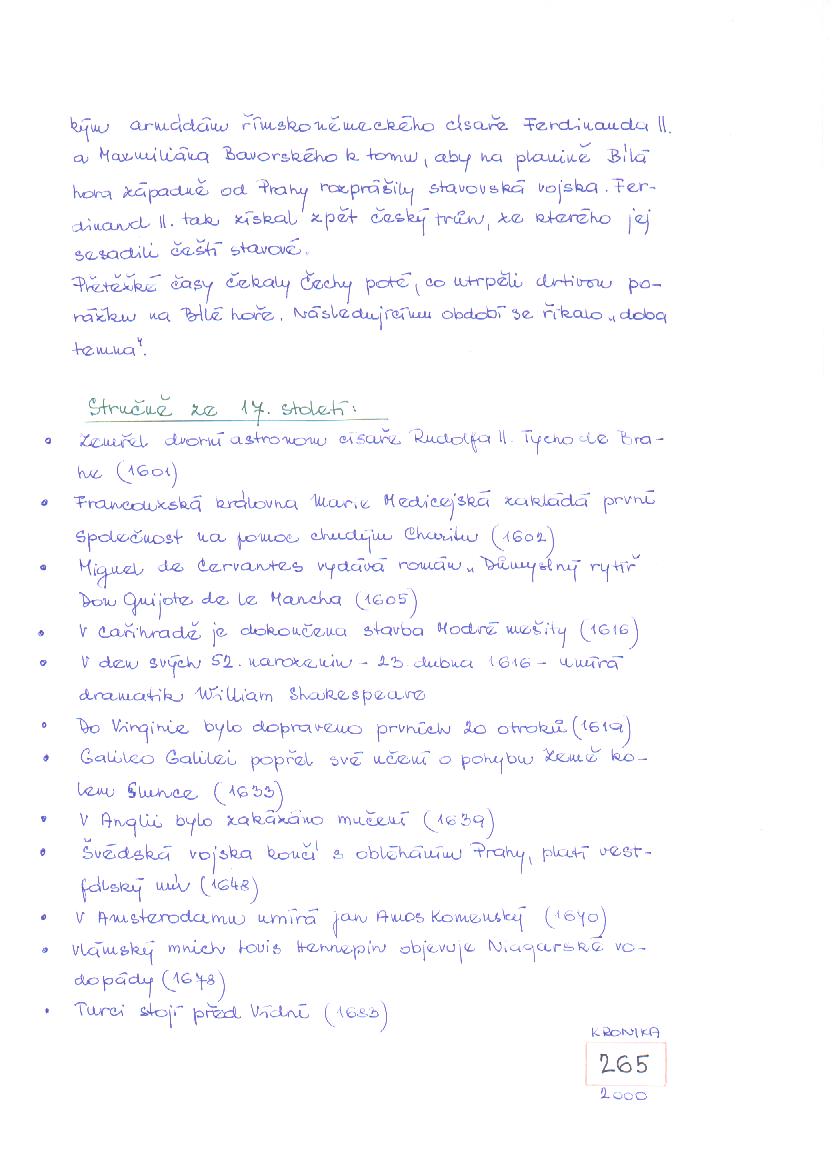 kým armádám římskoněmeckého císaře Ferdinanda II.
a Maxmiliána Bavorského k tomu, aby na planině Bílá
hora západně od Prahy rozprášily stavovská vojska. Fer-
dinand II. tak získal zpět český trůn, ze kterého jej
sesadili čeští stavové.
Přetěžké časy čekaly Čechy poté, co utrpěli drtivou po-
rážku na Bílé hoře. Následujícímu období se říkalo „doba
temna“.
Stručně ze 17. století:
• Zemřel dvorní astronom císaře Rudolfa II. Tycho de Bra-
he (1601)
• Francouzská královna Marie Medicejská zakládá první
společnost na pomoc chudým Charitu (1602)
• Miguel de Cervantes vydává román „Důmyslný rytíř
Don Quijote de le Mancha (1605)
• V Cařihradě je dokončena stavba Modré mešity (1616)
• V den svých 52. narozenin - 23 dubna 1616 - umírá
dramatik William Shakespeare
• Do Virginie bylo dopraveno prvních 20 otroků (1619)
• Galileo Galilei popřel své učení o pohybu Země ko-
lem Slunce (1633)
• V Anglii bylo zakázáno mučení (1639)
• Švédská vojska končí s obléháním Prahy, platí vest-
fálský mír (1648)
• V Amsterodamu umírá Jan Amos Komenský (1670)
• Vlámský mnich Louis Hennepin objevuje Niagarské vo-
dopády (1678)
• Turci stojí před Vídní (1683)
KRONIKA
265
2000